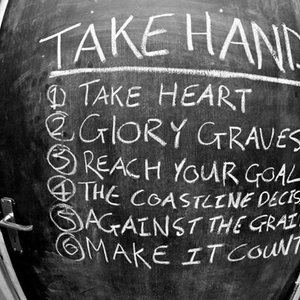 TAKE HAND
1 TAKE HEART
2 GLORY GRAVES
3 REACH YOUR GOAL
4 THE COASTLINE DECIS
5 AGAINST THE GRAI
6 MAKE IT COUNT